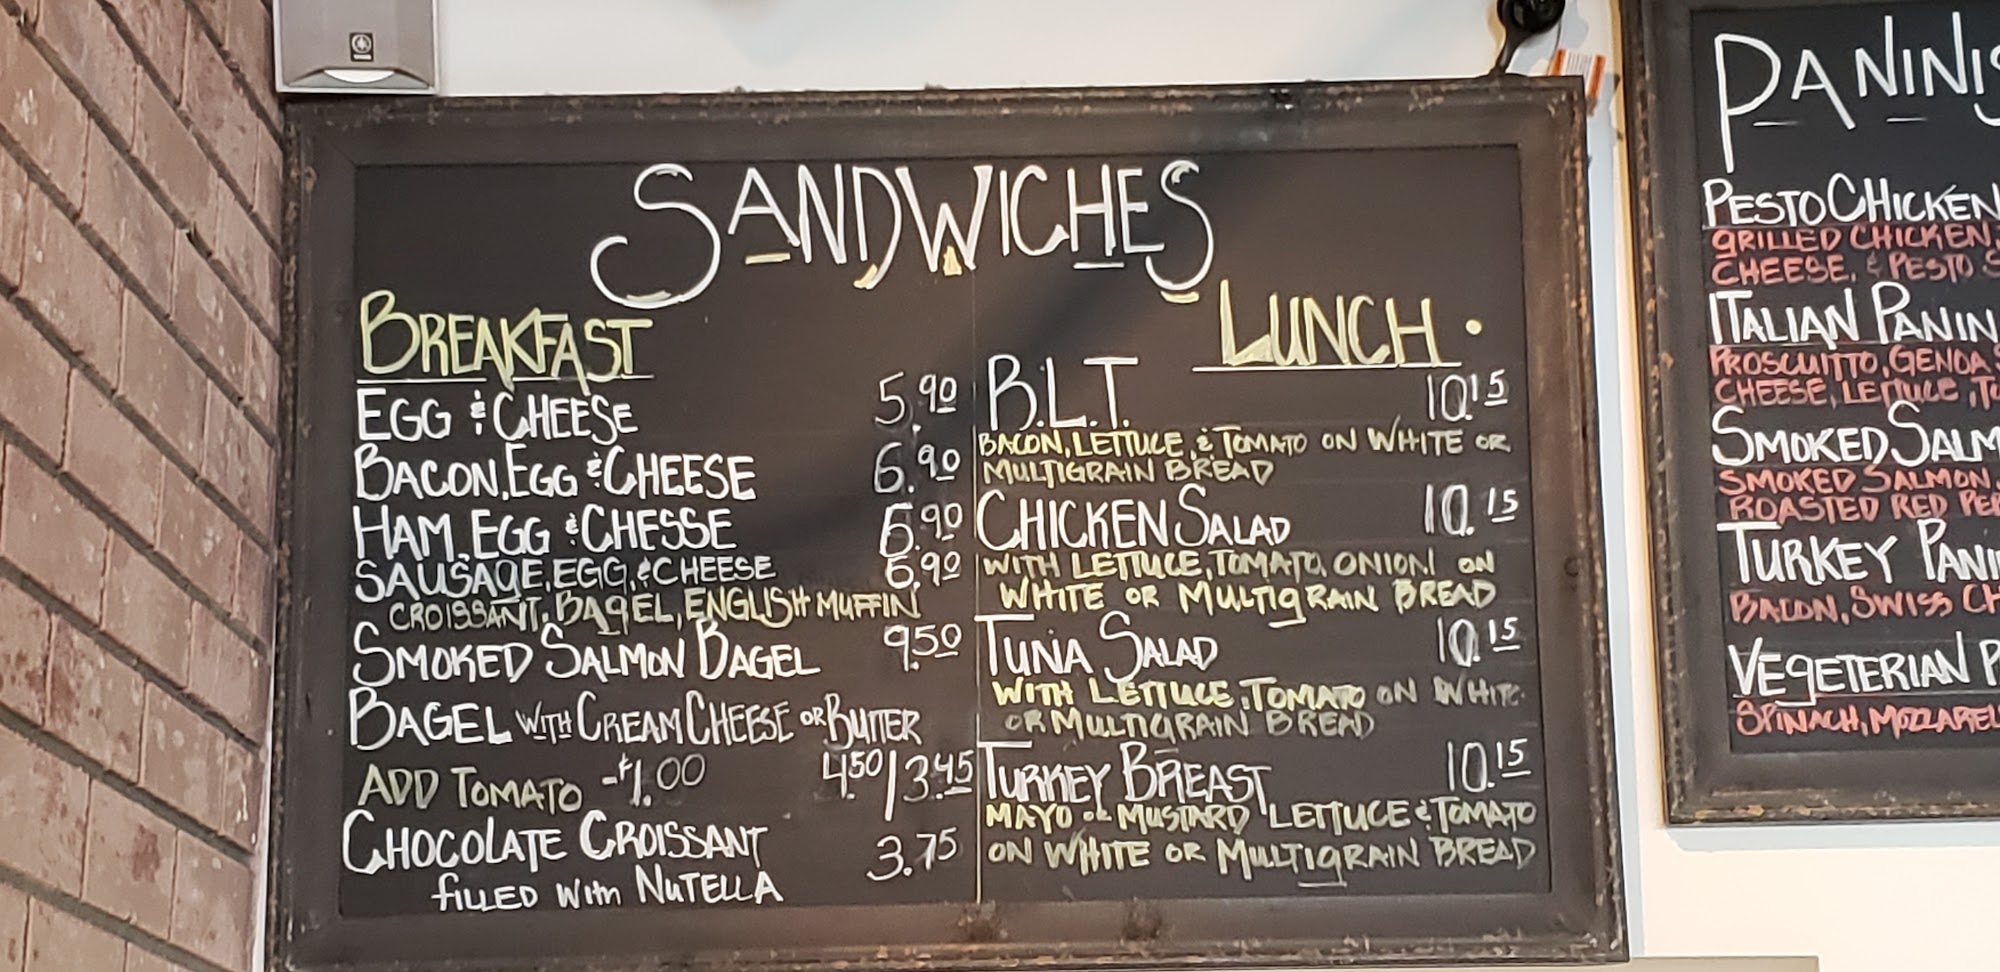 SANDWICHES
BREAKFAST
EGG & CHEESE 5.90
BACON, EGG & CHEESE 6.90
HAM, EGG & CHESSE 6.90
SAUSAGE, EGG, & CHEESE 6.90
CROISSANT, BAGEL, ENGLISH MUFFIN
SMOKED SALMON BAGEL 9.50
BAGEL WITH CREAM CHEESE OR BUTTER
ADD TOMATO -$1.00 4.50/3.45
CHOCOLATE CROISSANT 3.75
filled with NUTELLA
LUNCH
B.L.T. 10.15
BACON, LETTUCE, & TOMATO ON WHITE OR
MULTIGRAIN BREAD
CHICKEN SALAD 10.15
WITH LETTUCE, TOMATO, ONION ON
WHITE OR MULTIGRAIN BREAD
TUNA SALAD 10.15
WITH LETTUCE, TOMATO ON WHITE
OR MULTIGRAIN BREAD
TURKEY BREAST 10.15
MAYO OR MUSTARD LETTUCE & TOMATO
ON WHITE OR MULTIGRAIN BREAD
PANINIS
PESTO CHICKEN
GRILLED CHICKEN,
CHEESE, & PESTO
ITALIAN PANIN
PROSCUITTO, GENOA
CHEESE, LETTUCE,
SMOKED SALM
SMOKED SALMON,
ROASTED RED PEP
TURKEY PANI
BACON, SWISS CH
VEGETERIAN P
SPINACH, MOZZAREL